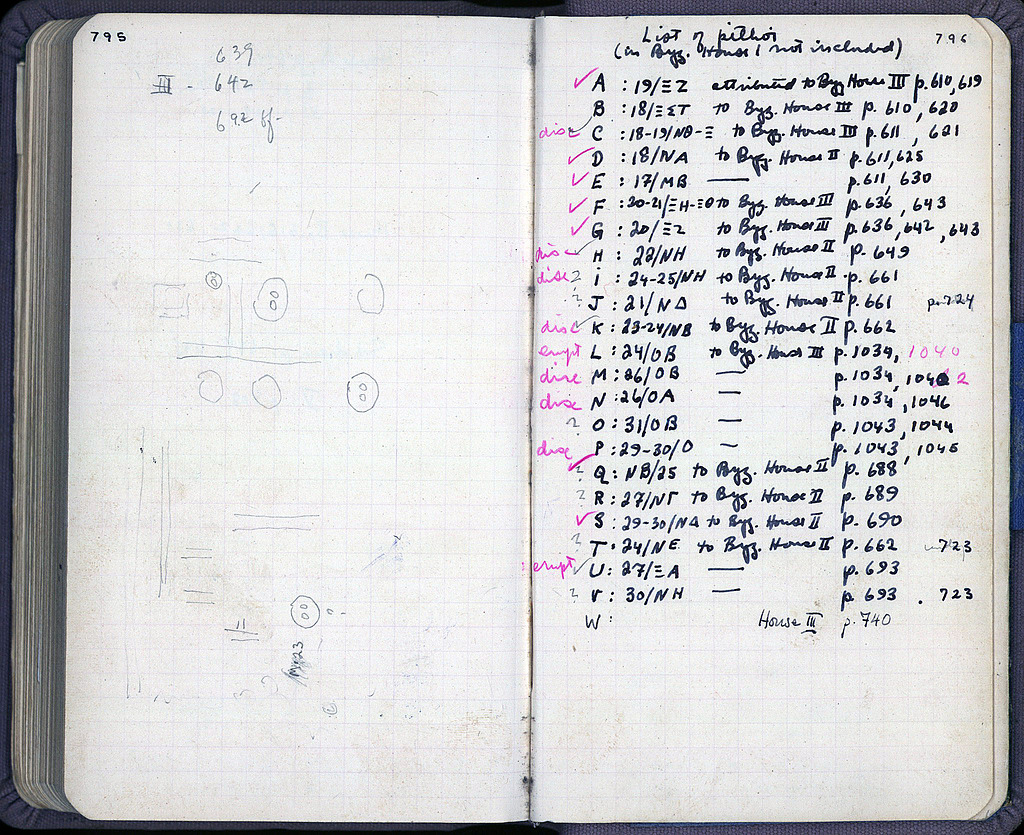 795
639
III - 642
692 ff.
796
List of pithoi
(in Byz. House I not included)
✓ A : 19/ΞΖ attributed to Byz House III p. 610, 619
B : 18/ΞΣΤ to Byz. House III p. 610, 620
disc C : 18-19/ΝΘ-Ξ to Byz. House III p. 611, 621
✓ D : 18/ΝΑ to Byz. House II p. 611, 625
✓ E : 17/ΜΒ — p. 611, 630
✓ F : 20-21/ΞΗ-ΞΘ to Byz. House III p. 636, 643
✓ G : 20/ΞΖ to Byz. House III p. 636, 642, 643
disc H : 22/ΝΗ to Byz. House II p. 649
disc ? i : 24-25/ΝΗ to Byz. House II p. 661
? J : 21/ΝΔ to Byz. House II p. 661 p. 724
disc K : 23-24/ΝΒ to Byz. House II p. 662
empt L : 24/ΟΒ to Byz. House III p. 1034, 1040
disc M : 26/ΟΒ — p. 1034, 1042
disc N : 26/ΟΑ — p. 1034, 1046
? O : 31/ΟΒ — p. 1043, 1044
disc P : 29-30/Ο — p. 1043, 1045
✓ ? Q : ΝΒ/25 to Byz. House II p. 688
? R : 27/ΝΓ to Byz. House II p. 689
✓ S : 29-30/ΝΔ to Byz. House II p. 690
? T : 24/ΝΕ to Byz. House II p. 662 723
empt ✓ U : 27/ΞΑ — p. 693
? V : 30/ΝΗ — p. 693 . 723
W : House III p. 740
23